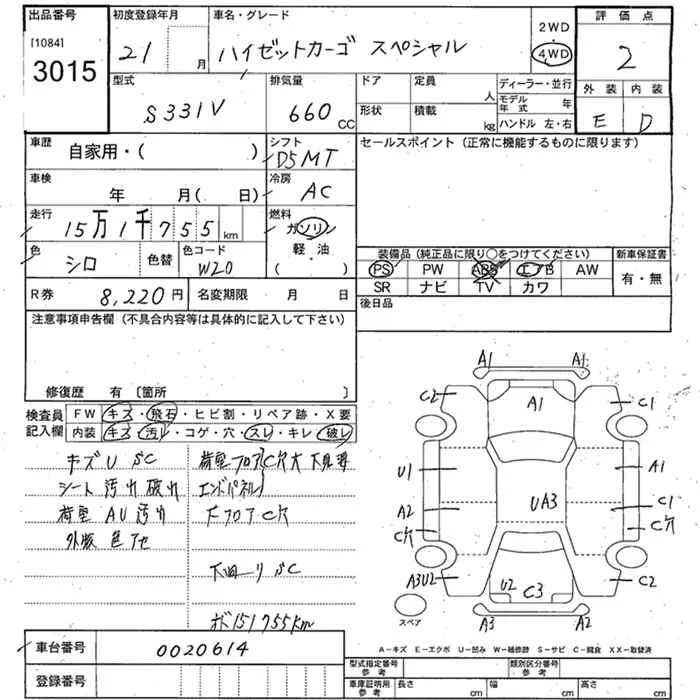 出品番号 初度登録年月 車名・グレード 評価点
[1084] 3015 21 月 ハイゼットカーゴ スペシャル 2WD 4WD 2
型式 排気量 ドア 定員 ディーラー・並行 外装 内装
S331V 660 CC 人 モデル年式 年 E D
形状 積載 kg ハンドル 左・右
車歴 自家用・( ) シフト D5MT セールスポイント (正常に機能するものに限ります)
車検 年 月( 日) 冷房 AC
走行 15万1千755 km 燃料 ガソリン
軽・油
( )
色 シロ 色替 色コード W20
装備品 (純正品に限り○をつけてください) 新車保証書
PS PW ABS エアB AW 有・無
SR ナビ TV カワ
R券 8,220円 名変期限 月 日 後日品
注意事項申告欄 (不具合内容等は具体的に記入して下さい)
修復歴 有 [箇所 ]
検査員記入欄 FW キズ・飛石・ヒビ割・リペア跡・X要
内装 キズ・汚レ・コゲ・穴・スレ・キレ・破レ
キズ U SC
シート 汚れ 破れ
荷室 AU 汚れ
外板 色アセ
荷室フロアC穴大 下見要
エンドパネル
フロアC穴
下回り SC
ボド151755km
A1 A1
C2 A1 C1
U1 A1
A2 UA3 C1
C穴 C穴
A3U2 U2 C3 C2
A3 A2
スペア
A-キズ E-エクボ U-凹み W-補修跡 S-サビ C-腐食 XX-取替済
車台番号 0020614
登録番号
型式指定番号 参考 類別区分番号 参考
車庫証明用 参考 長さ cm 幅 cm 高さ cm